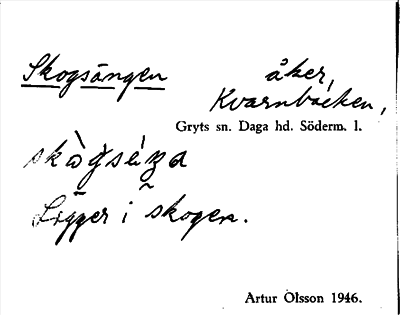 Skogsängen åker,
Kvarnbacken,
Gryts sn. Daga hd. Söderm. l.
Ligger i skogen.
Artur Olsson 1946.